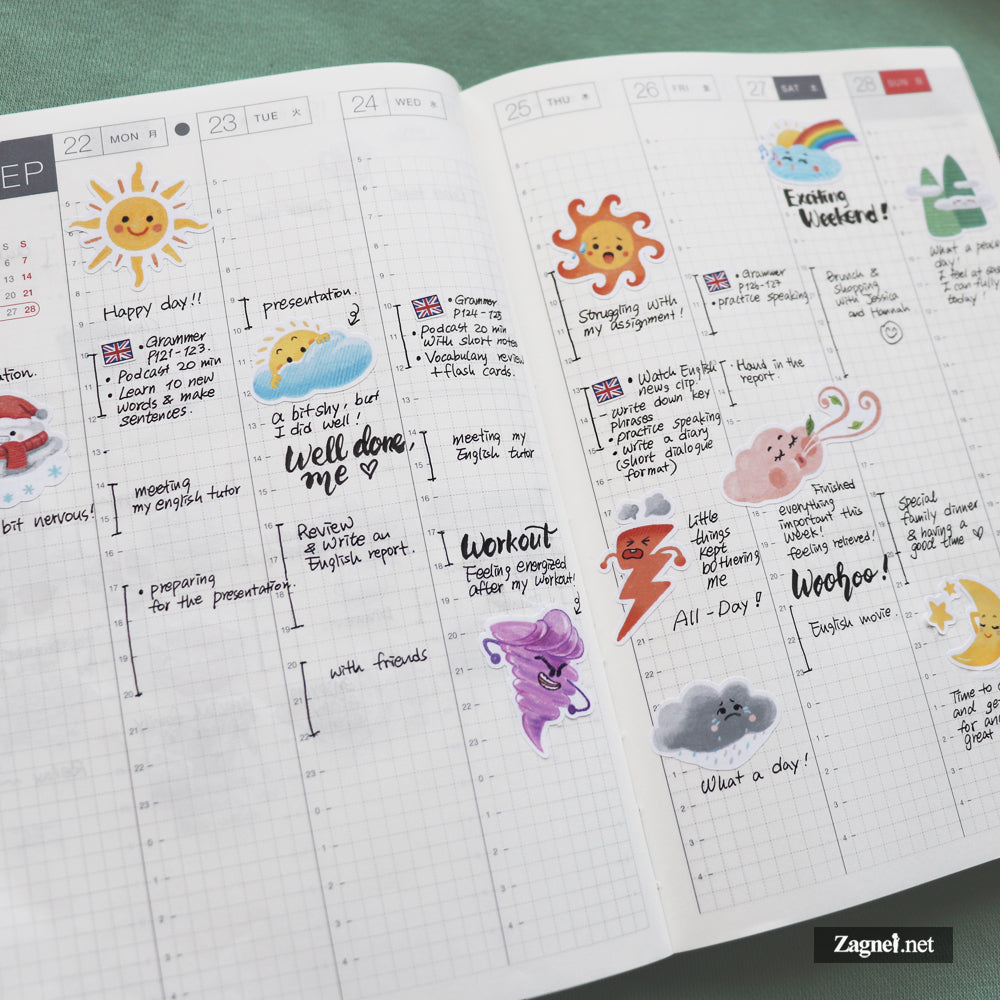 EP
S S
6 7
13 14
20 21
27 28
ation.
bit nervous!
22 MON 月
Happy day!!
• Grammer
P121-123.
• Podcast 20 min
• Learn 10 new
words & make
sentences.
meeting
my english tutor
• preparing
for the presentation.
23 TUE 火
presentation.
a bit shy, but
I did well!
Well done,
me ♡
Review
& Write an
English report.
with friends
24 WED 水
• Grammer
P124-125
• Podcast 20 min
with short notes
• Vocabulary review
+ flash cards.
meeting my
English tutor
Workout
Feeling energized
after my workout!
25 THU 木
Struggling with
my assignment!
• Watch English
news clip.
• Write down key
phrases
• practice speaking
• write a diary
(short dialogue
format)
Little
things
kept
bothering
me
All-Day!
What a day!
26 FRI 金
• Grammer
P126-127
• practice speaking
• Hand in the
report.
Finished
everything
important this
week!
feeling relieved!
Woohoo!
English movie.
27 SAT 土
Exciting
Weekend!
Brunch &
shopping
with Jessica
and Hannah
Special
family dinner
& having a
good time ♡
28 SUN 日
What a peac
day!
I feel at
I can fully
today!
Time to
and ge
for an
great
Zagnei.net